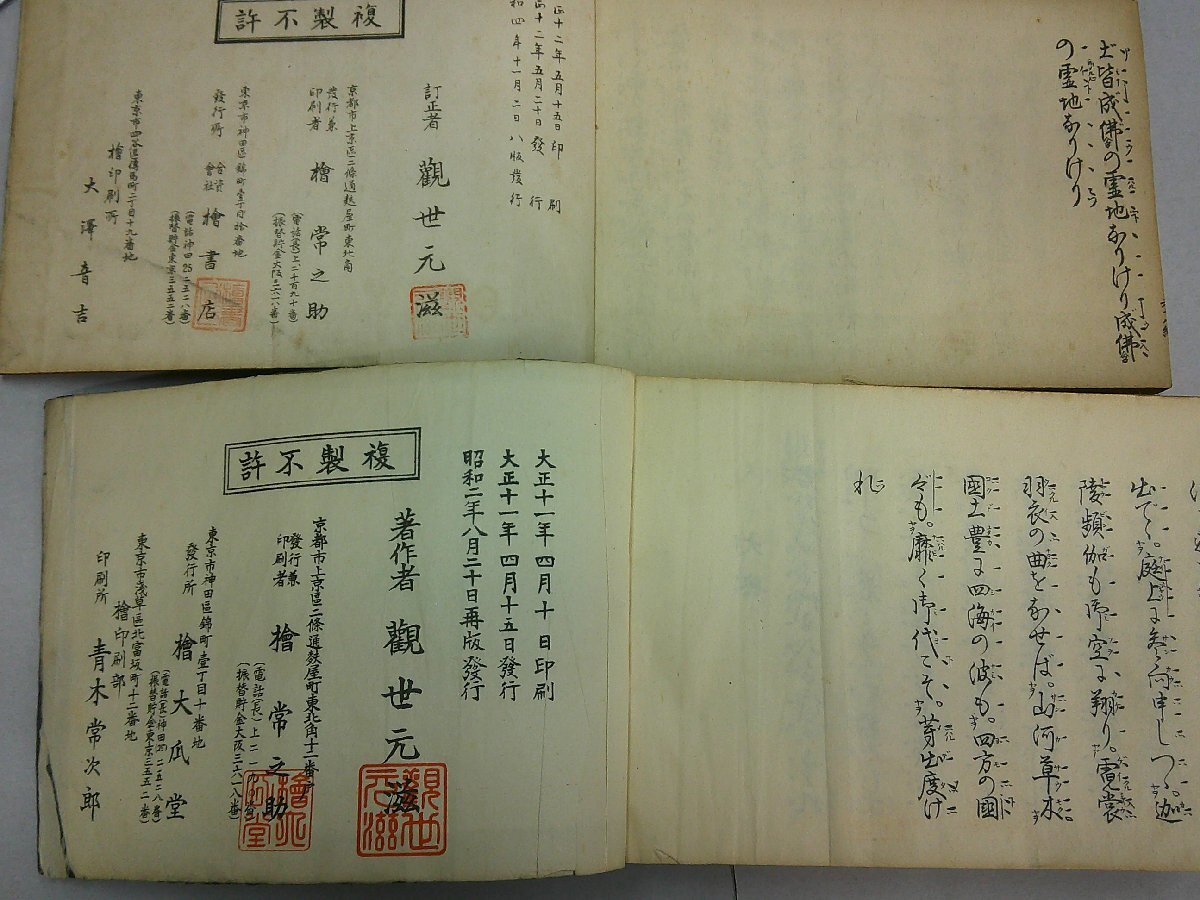 土皆成佛の霊地なりけり成佛
の霊地なりけり
複製不許
正十二年五月十五日印刷
正十二年五月二十日發行
和四年十一月二日八版發行
訂正者 觀世元滋
京都市上京區二條通麩屋町東北角
發行兼印刷者 檜常之助
東京市神田區錦町壹丁目拾番地
發行所 合資會社 檜書店
檜印刷所
大澤音吉
出で。庭上に參向申しつゝ。迦
陵頻伽も御空に翔り。霓裳
羽衣の曲をなせば。山河草木
國土豊に四海の波も。四方の國
々も。靡く御代こそ。芽出度け
れ
複製不許
大正十一年四月十日印刷
大正十一年四月十五日發行
昭和二年八月二十日再版發行
著作者 觀世元滋
京都市上京區二條通麩屋町東北角十二番
發行兼印刷者 檜常之助
(振替貯金大阪三六一八番)
東京市神田區錦町壹丁目十番地
發行所 檜大瓜堂
(電話(長)神田25二五二八番)
(振替貯金東京三五五二番)
東京市淺草區北富坂町十二番地
檜印刷部
印刷所 青木常次郎